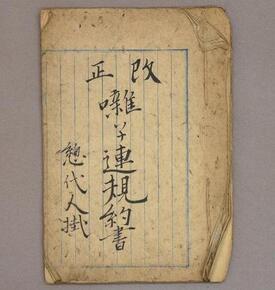 改正
囃子連規約書
惣代人掛